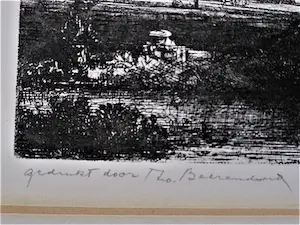 gedrukt door Tho. Beerendonk